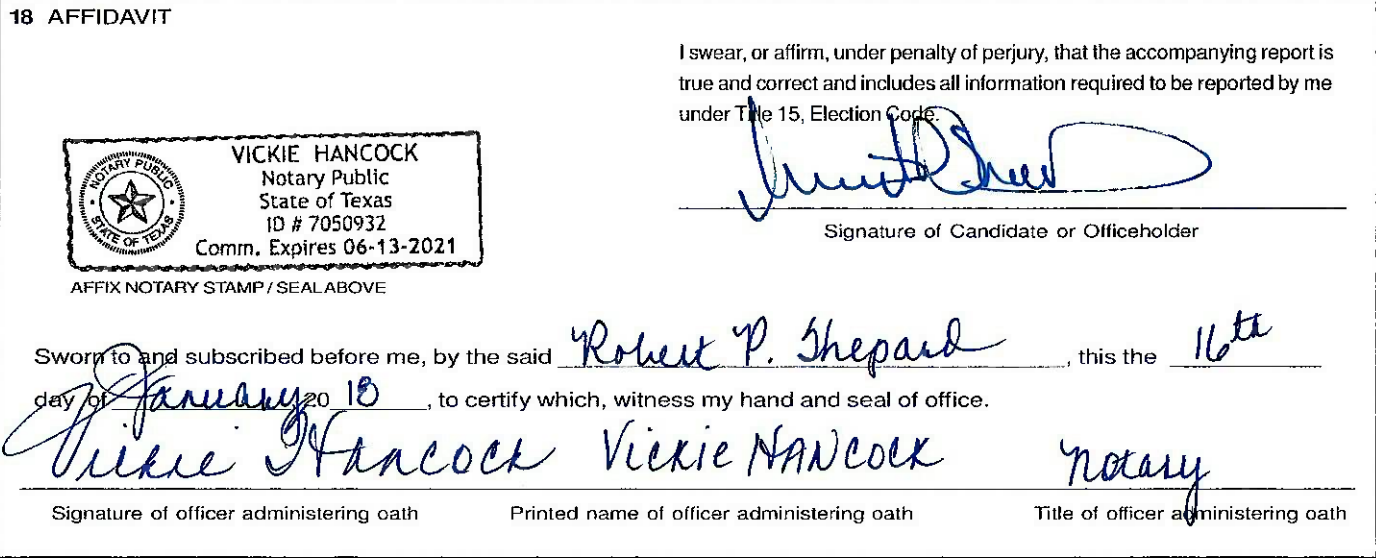 18 AFFIDAVIT
I swear, or affirm, under penalty of perjury, that the accompanying report is
true and correct and includes all information required to be reported by me
under Title 15, Election Code.
VICKIE HANCOCK
Notary Public
State of Texas
ID # 7050932
Comm. Expires 06-13-2021
NOTARY PUBLIC
STATE OF TEXAS
Signature of Candidate or Officeholder
AFFIX NOTARY STAMP / SEAL ABOVE
Sworn to and subscribed before me, by the said Robert P. Shepard, this the 16th
day of January, 20 18, to certify which, witness my hand and seal of office.
Vickie Hancock Vickie HANCOCK Notary
Signature of officer administering oath Printed name of officer administering oath Title of officer administering oath